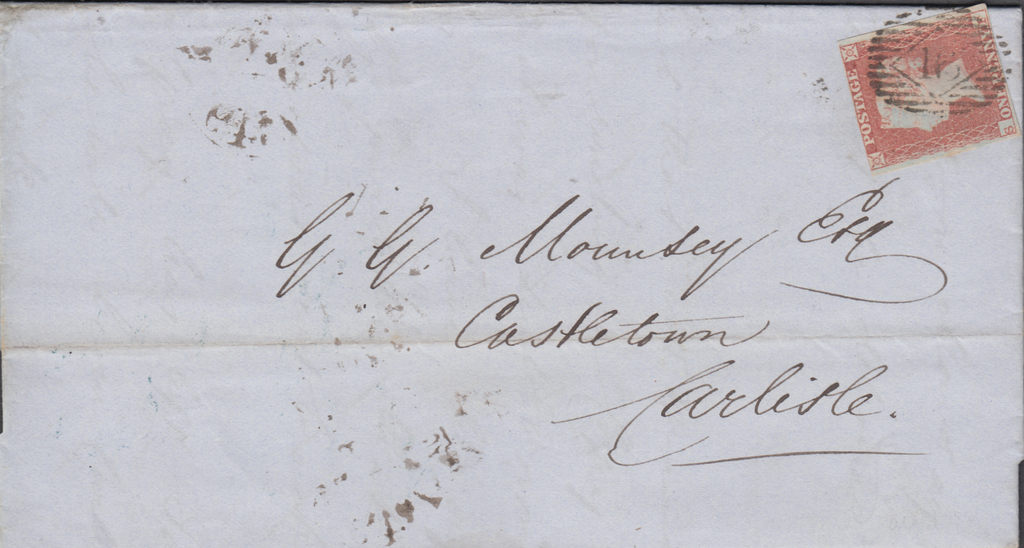 POSTAGE
ONE PENNY
G. G. Mounsey Esq
Castletown
Carlisle.